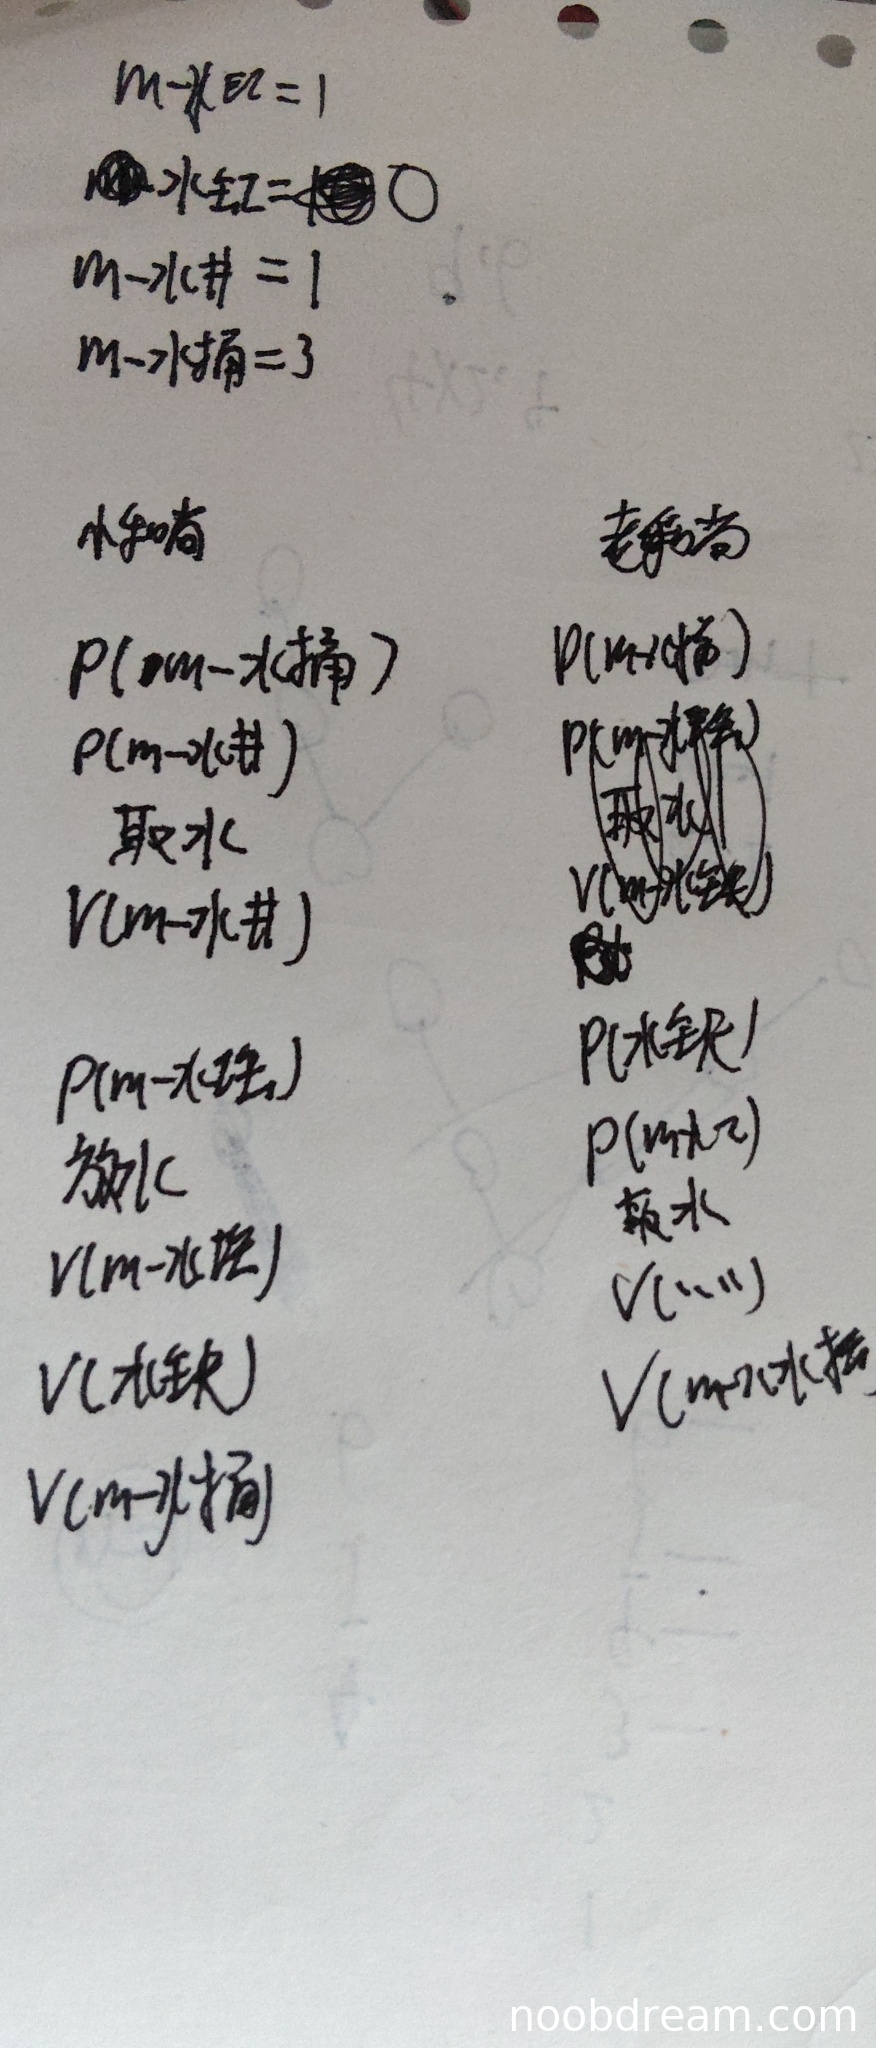 m-水缸=1
水缸=0
m-水井=1
m-水桶=3
小和尚
P(m-水桶)
P(m-水井)
取水
V(m-水井)
P(m-水缸)
放水
V(m-水缸)
V(水缸)
V(m-水桶)
老和尚
P(m-水桶)
取水
P(水缸)
P(m-水缸)
取水
V(.....)
V(m-水桶
noobdream.com